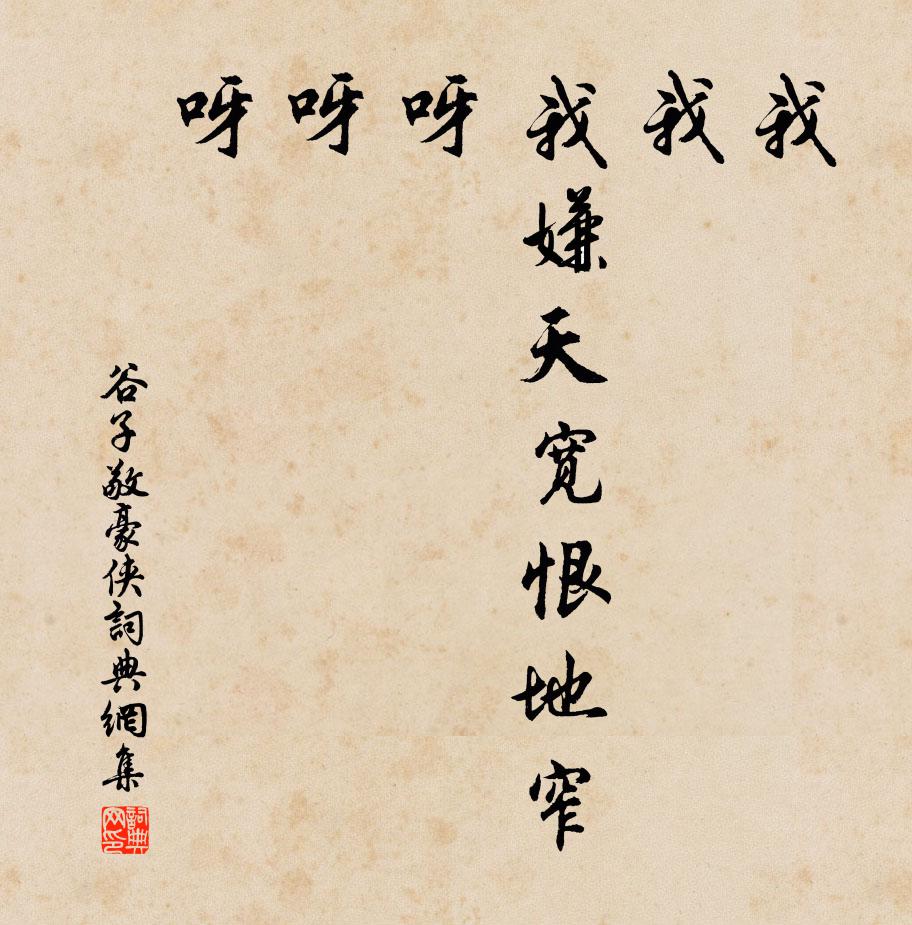 我
我
我嫌天宽恨地窄
呀
呀
呀
谷子敬豪侠詞典網集
詞典
网印